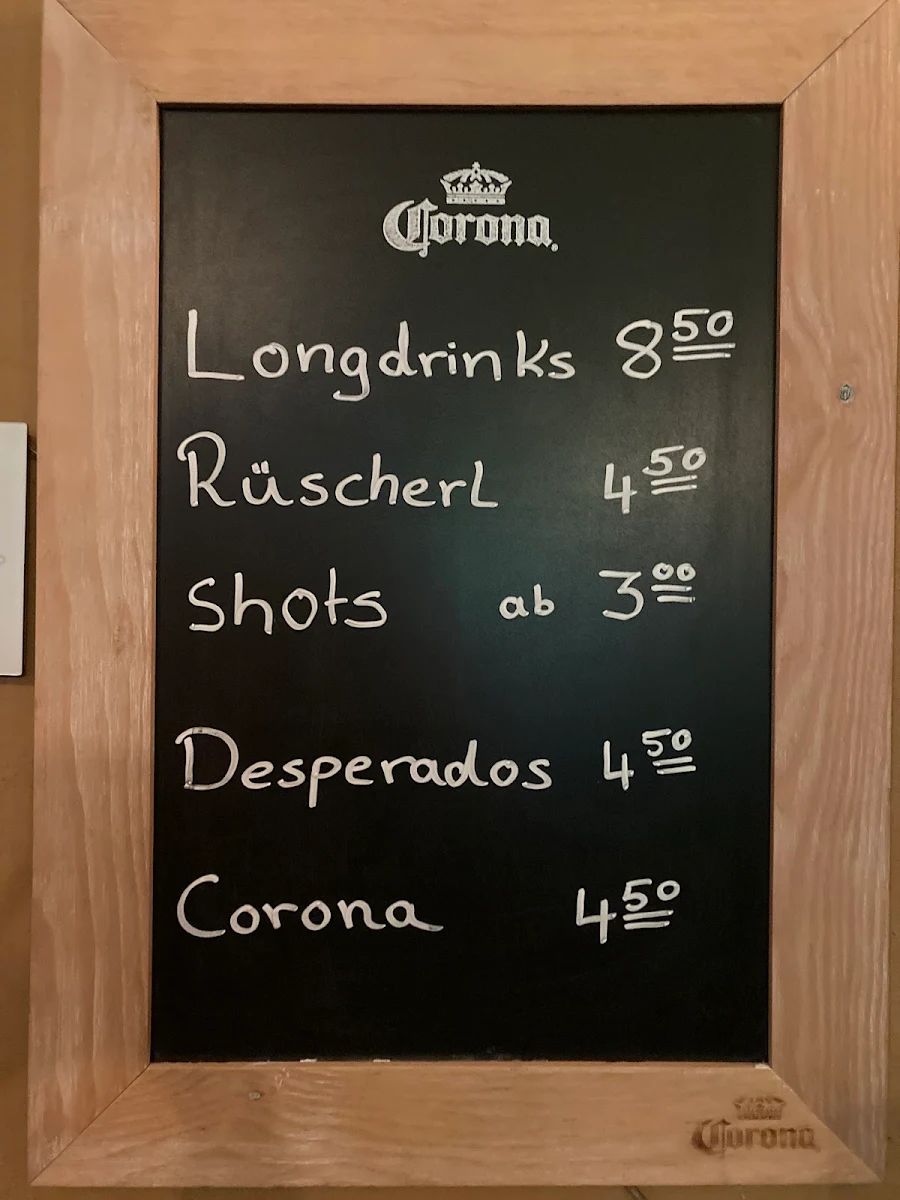 Corona
Longdrinks 8 50
Rüscherl 4 50
Shots ab 3 00
Desperados 4 50
Corona 4 50
Corona